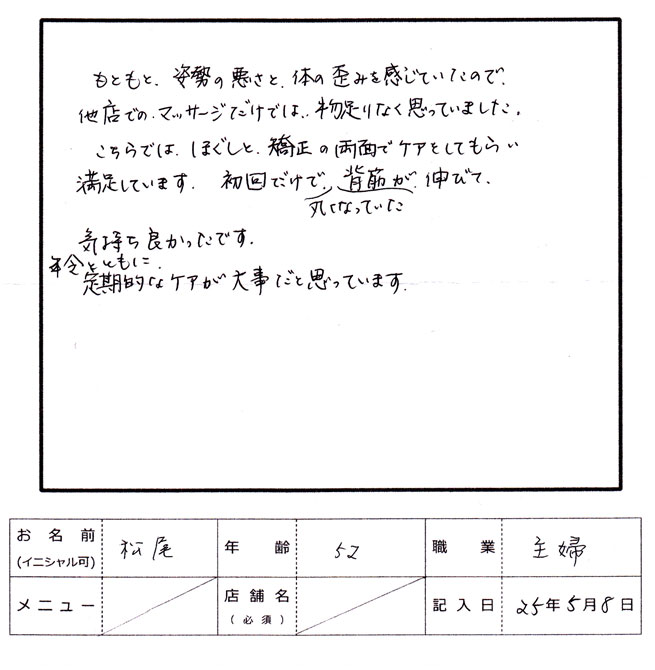 もともと、姿勢の悪さと、体の歪みを感じていたので、
他店での、マッサージだけでは、物足りなく思っていました。
こちらでは、ほぐしと、矯正の両面でケアをしてもらい
満足しています。 初回だけで、背筋が、伸びて、
丸くなっていた
気持ち良かったです。
年令とともに、
定期的なケアが大事だと思っています。
お名前 (イニシャル可) 松尾 年齢 52 職業 主婦
メニュー 店舗名 (必須) 記入日 25年5月8日